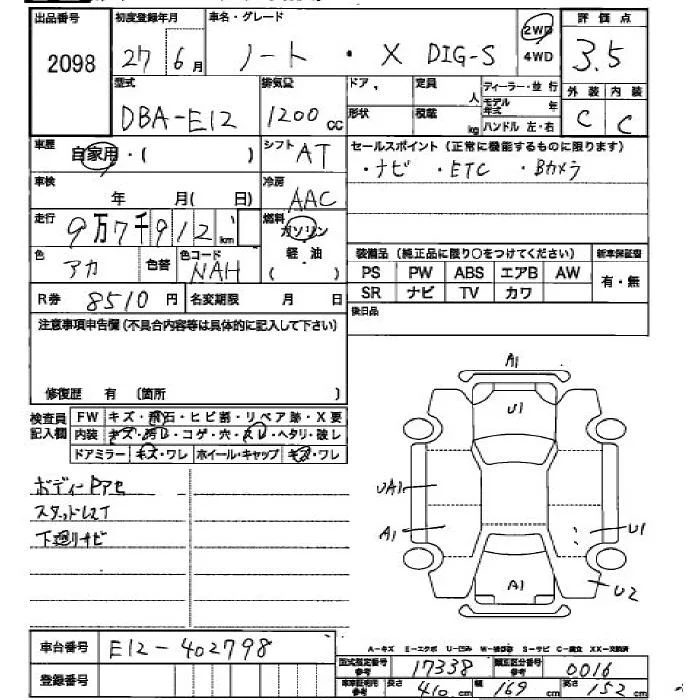 出品番号 初度登録年月 車名・グレード 2WD 4WD 評価点
2098 27 6月 ノート・X DIG-S 3.5
型式 排気量 ドア 定員 人 ディーラー・並行 外装 内装
DBA-E12 1200cc 形状 積載 kg モデル年式 年 ハンドル 左・右 C C
車歴 自家用・( ) シフト AT セールスポイント(正常に機能するものに限ります)
・ナビ ・ETC ・Bカメラ
車検 年 月(日) 冷房 AAC
走行 9万7千912km 燃料 ガソリン 軽油 ( )
色 アカ 色替 色コード NAH 装備品(純正品に限り○をつけてください) 新車保証書
PS PW ABS エアB AW 有・無
R券 8510円 名変期限 月 日 SR ナビ TV カワ
注意事項申告欄(不具合内容等は具体的に記入して下さい) 後日品
修復歴 有 [箇所 ]
検査員記入欄 FW キズ・飛石・ヒビ割・リペア跡・X要
内装 キズ・汚レ・コゲ・穴・スレ・ヘタリ・破レ
ドアミラー キズ・ワレ ホイール・キャップ キズ・ワレ
A1
U1
UA1
A1 U1
A1 U2
スタッドレスT
下廻りサビ
車台番号 E12-402798
A-キズ E-エクボ U-凹み S-サビ C-腐食 XX-交換済
登録番号 型式指定番号参考 17338 類別区分番号参考 0016
長さ 410cm 幅 169cm 高さ 152cm